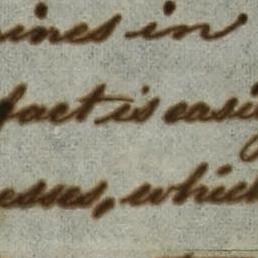 ines in
fact is easi
esses, which